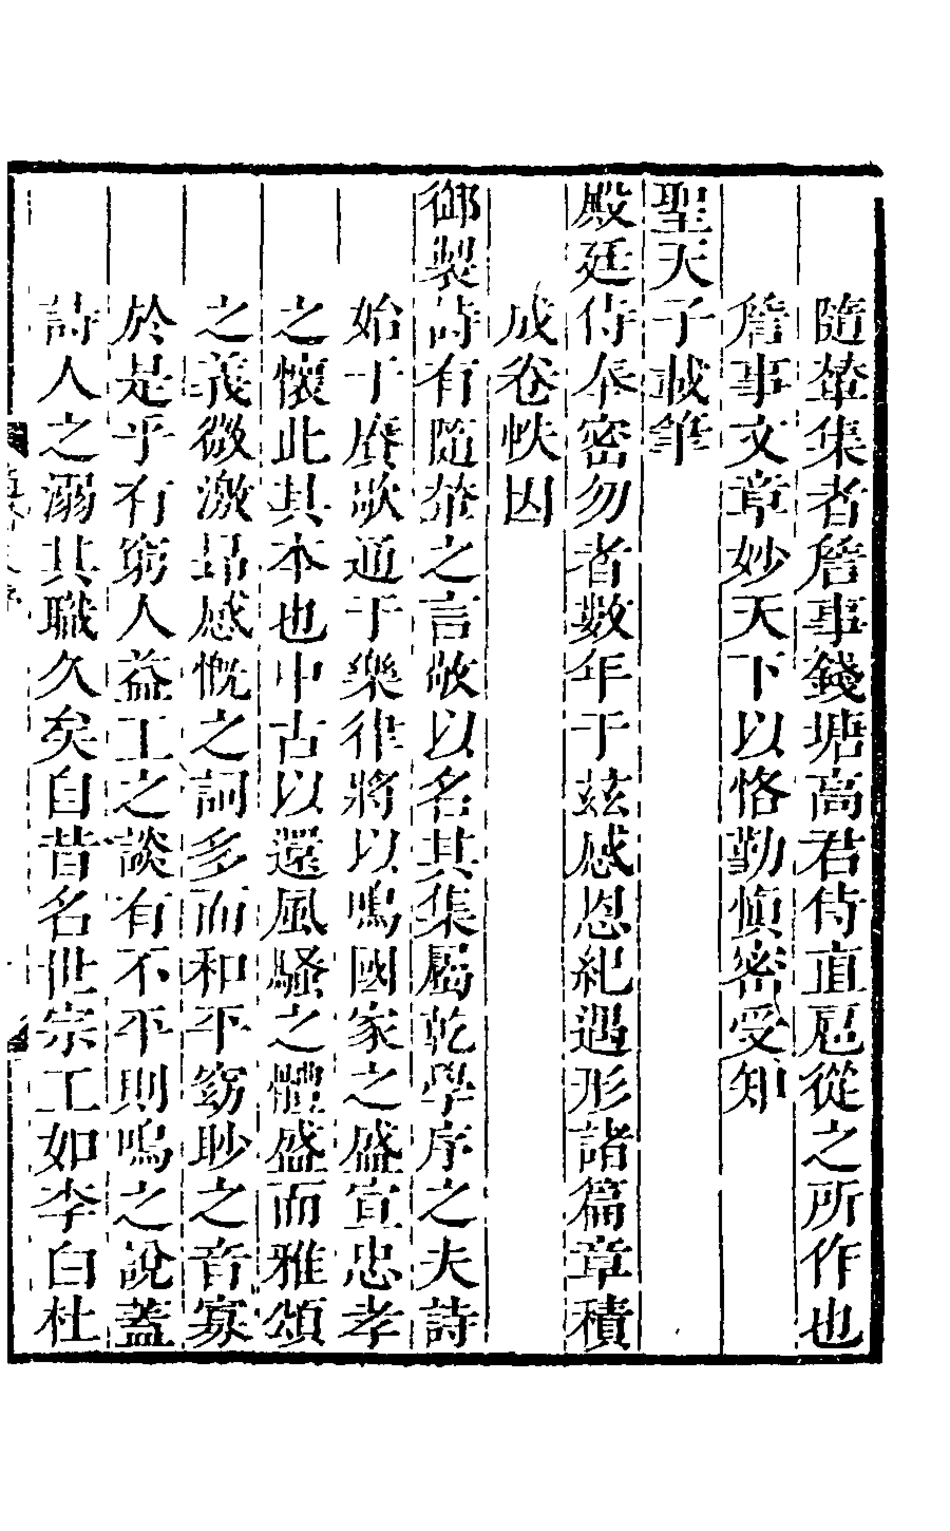 隨輦集者詹事錢塘高君侍直扈從之所作也
詹事文章妙天下以恪勤愼密受知
聖天子載筆
殿廷侍奉密勿者數年于茲感恩紀遇形諸篇章積
成卷帙因
御製詩有隨輦之言敬以名其集屬乾學序之夫詩
始于賡歌通于樂律將以鳴國家之盛宣忠孝
之懷此其本也中古以還風騷之體盛而雅頌
之義微激昻感慨之詞多而和平窈眇之音寡
於是乎有窮人益工之談有不平則鳴之說蓋
詩人之溺其職久矣自昔名世宗工如李白杜